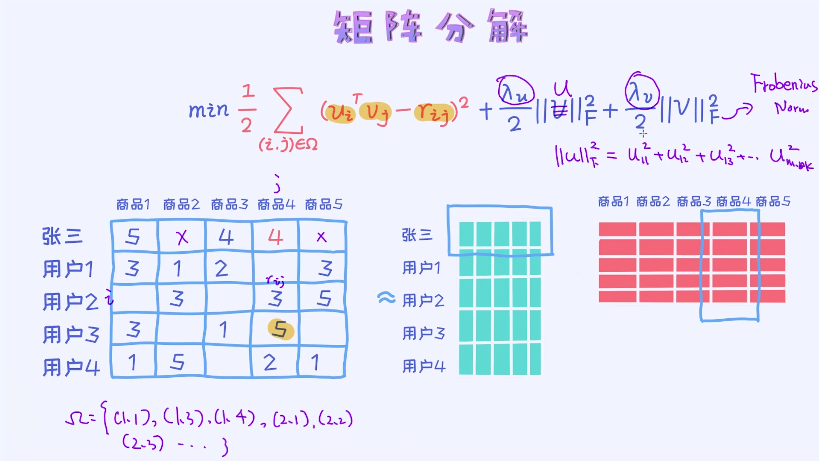 矩阵分解
min 1/2 ∑ (i,j)∈Ω (u_i^T v_j − r_ij)^2 + λ_u/2 ||U||_F^2 + λ_v/2 ||V||_F^2
U
Frobenius
Norm
||u||_F^2 = u_11^2 + u_12^2 + u_13^2 + ...
j
商品1 商品2 商品3 商品4 商品5
张三 5 x 4 4 x
用户1 3 1 2 3
r_ij
用户2 i 3 3 5
用户3 3 1 5
用户4 1 5 2 1
≈
张三
用户1
用户2
用户3
用户4
商品1 商品2 商品3 商品4 商品5
Ω={(1.1), (1.3), (1.4), (2.1), (2.2)
(2.3) ... }